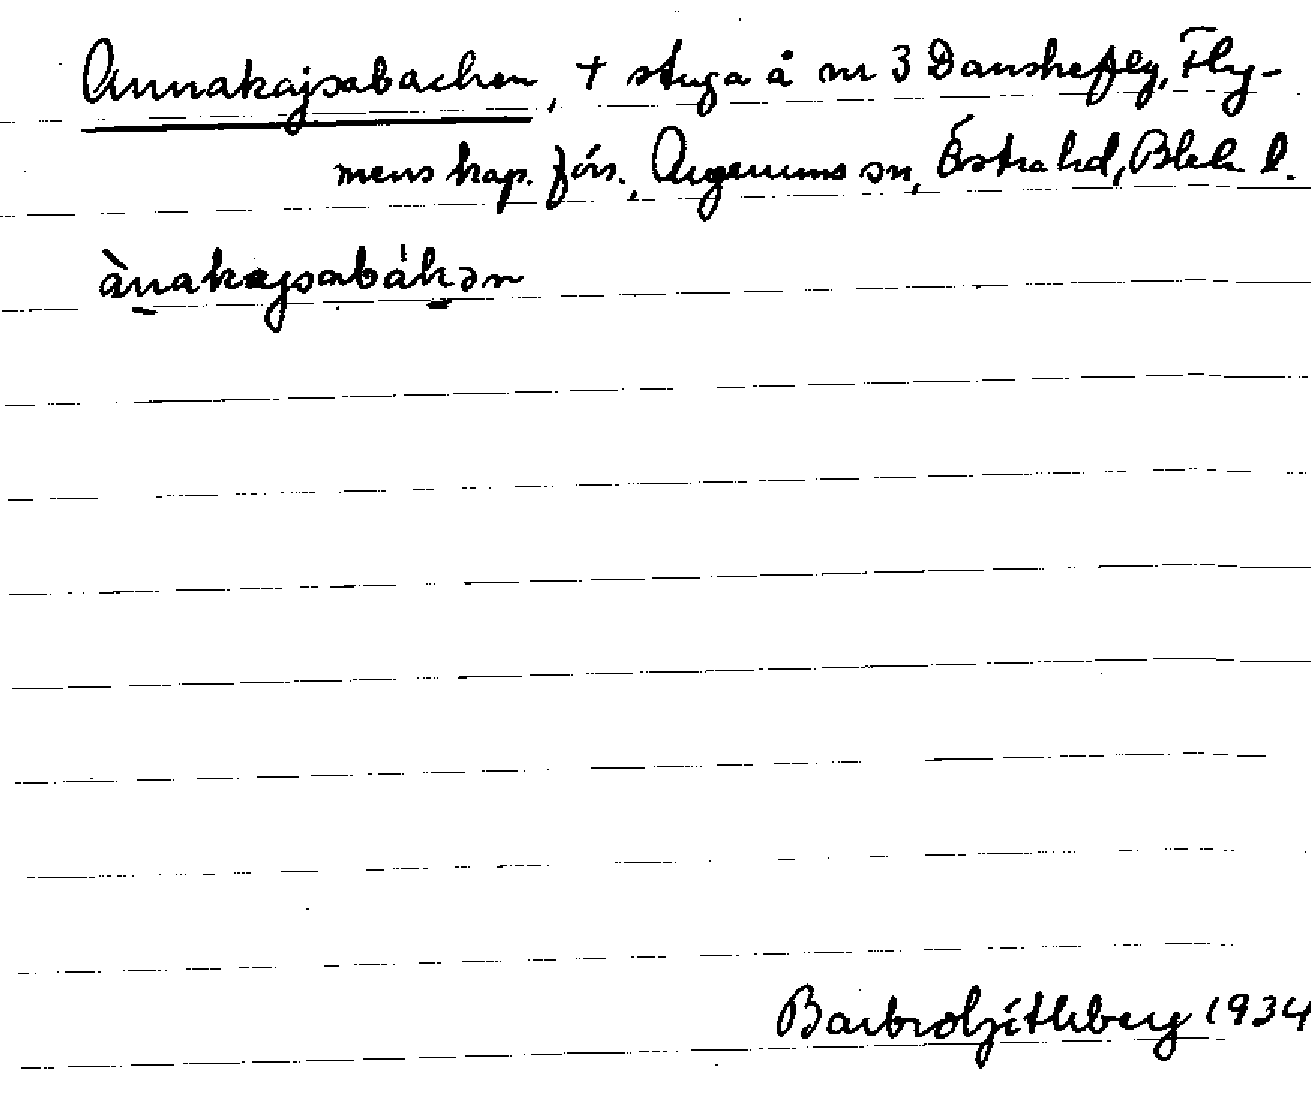 Annakajsabacken, + stuga å nr 3 Danskefly, Fly-
mens kap. förs., Augerums sn, Östra hd, Blek l.
ànakajsabákən
1934